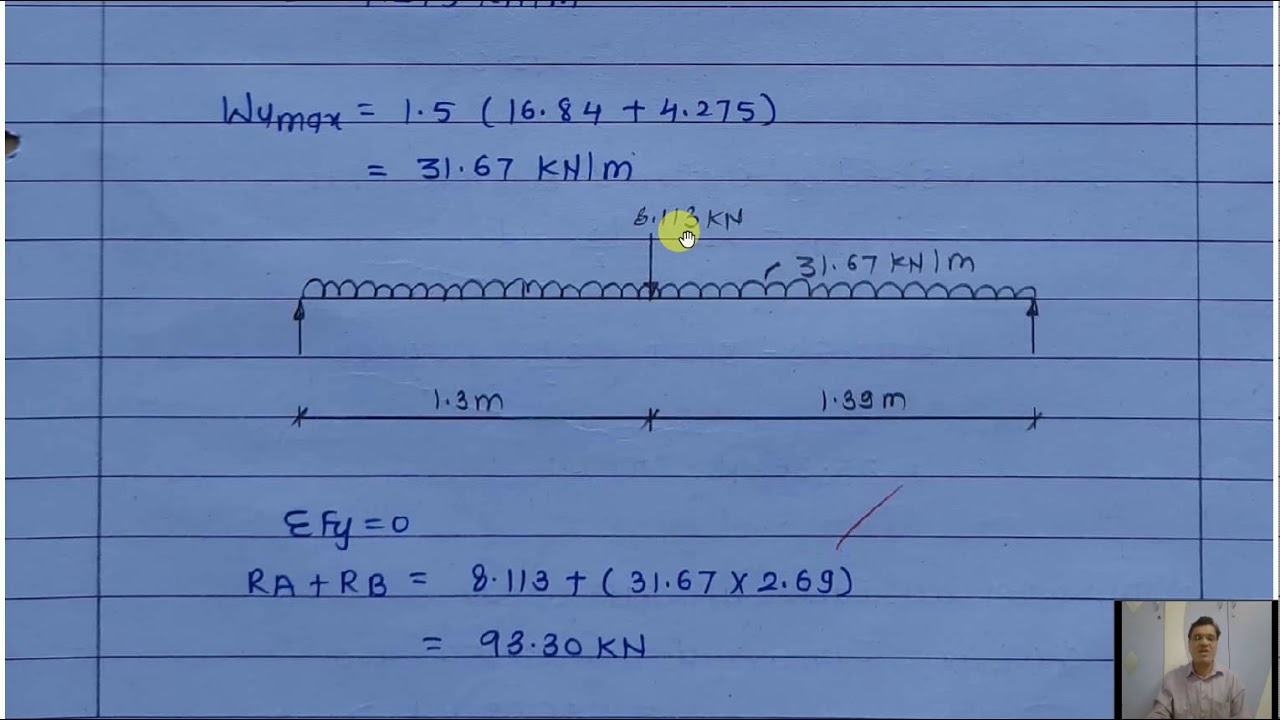 Wumax = 1.5 (16.84 + 4.275)
= 31.67 KN/m
8.113 KN
31.67 KN/m
1.3m
1.39m
ΣFy = 0
RA + RB = 8.113 + (31.67 X 2.69)
= 93.30 KN